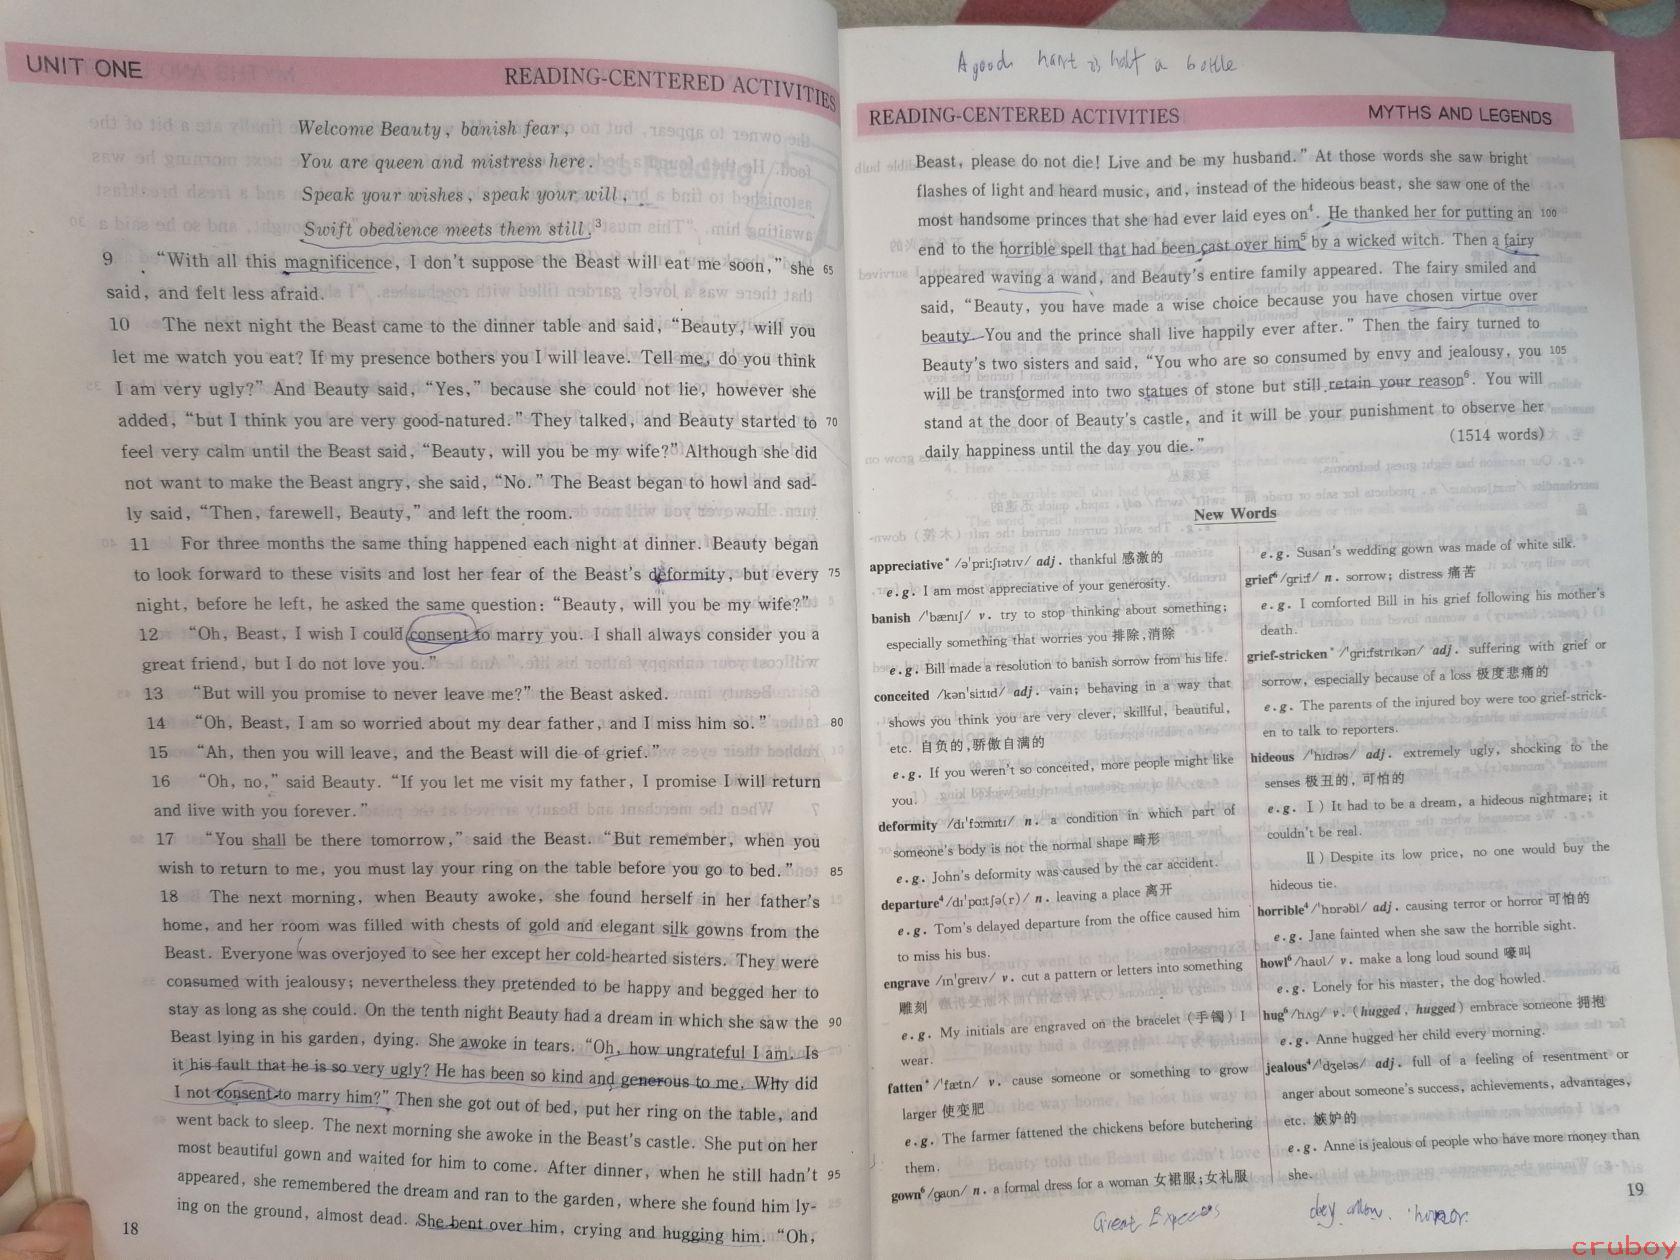 UNIT ONE
READING-CENTERED ACTIVITIES
Welcome Beauty, banish fear,
You are queen and mistress here.
Speak your wishes, speak your will,
Swift obedience meets them still.3
9 “With all this magnificence, I don't suppose the Beast will eat me soon,” she 65
said, and felt less afraid.
10 The next night the Beast came to the dinner table and said, “Beauty, will you
let me watch you eat? If my presence bothers you I will leave. Tell me, do you think
I am very ugly?” And Beauty said, “Yes,” because she could not lie, however she
added, “but I think you are very good-natured.” They talked, and Beauty started to 70
feel very calm until the Beast said, “Beauty, will you be my wife?” Although she did
not want to make the Beast angry, she said, “No.” The Beast began to howl and sad-
ly said, “Then, farewell, Beauty,” and left the room.
11 For three months the same thing happened each night at dinner. Beauty began
to look forward to these visits and lost her fear of the Beast's deformity, but every 75
night, before he left, he asked the same question: “Beauty, will you be my wife?”
12 “Oh, Beast, I wish I could consent to marry you. I shall always consider you a
great friend, but I do not love you.”
13 “But will you promise to never leave me?” the Beast asked.
14 “Oh, Beast, I am so worried about my dear father, and I miss him so.” 80
15 “Ah, then you will leave, and the Beast will die of grief.”
16 “Oh, no,” said Beauty. “If you let me visit my father, I promise I will return
and live with you forever.”
17 “You shall be there tomorrow,” said the Beast. “But remember, when you
wish to return to me, you must lay your ring on the table before you go to bed.” 85
18 The next morning, when Beauty awoke, she found herself in her father's
home, and her room was filled with chests of gold and elegant silk gowns from the
Beast. Everyone was overjoyed to see her except her cold-hearted sisters. They were
consumed with jealousy; nevertheless they pretended to be happy and begged her to
stay as long as she could. On the tenth night Beauty had a dream in which she saw the 90
Beast lying in his garden, dying. She awoke in tears. “Oh, how ungrateful I am. Is
it his fault that he is so very ugly? He has been so kind and generous to me. Why did
I not consent to marry him?” Then she got out of bed, put her ring on the table, and
went back to sleep. The next morning she awoke in the Beast's castle. She put on her
most beautiful gown and waited for him to come. After dinner, when he still hadn't 95
appeared, she remembered the dream and ran to the garden, where she found him ly-
ing on the ground, almost dead. She bent over him, crying and hugging him. “Oh,
18
A good is half a bottle
READING-CENTERED ACTIVITIES
MYTHS AND LEGENDS
Beast, please do not die! Live and be my husband.” At those words she saw bright
flashes of light and heard music, and, instead of the hideous beast, she saw one of the
most handsome princes that she had ever laid eyes on4. He thanked her for putting an 100
end to the horrible spell that had been cast over him5 by a wicked witch. Then a fairy
appeared waving a wand, and Beauty's entire family appeared. The fairy smiled and
said, “Beauty, you have made a wise choice because you have chosen virtue over
beauty. You and the prince shall live happily ever after.” Then the fairy turned to
Beauty's two sisters and said, “You who are so consumed by envy and jealousy, you 105
will be transformed into two statues of stone but still retain your reason6. You will
stand at the door of Beauty's castle, and it will be your punishment to observe her
daily happiness until the day you die.”
(1514 words)
New Words
appreciative* /ə'pri:ʃɪətɪv/ adj. thankful 感激的
e.g. I am most appreciative of your generosity.
banish /'bænɪʃ/ v. try to stop thinking about something;
especially something that worries you 排除,消除
e.g. Bill made a resolution to banish sorrow from his life.
conceited /kən'si:tɪd/ adj. vain; behaving in a way that
shows you think you are very clever, skillful, beautiful,
etc. 自负的,骄傲自满的
e.g. If you weren't so conceited, more people might like
you.
deformity /dɪ'fɔ:mɪtɪ/ n. a condition in which part of
someone's body is not the normal shape 畸形
e.g. John's deformity was caused by the car accident.
departure4 /dɪ'pɑ:tʃə(r)/ n. leaving a place 离开
e.g. Tom's delayed departure from the office caused him
to miss his bus.
engrave /ɪn'greɪv/ v. cut a pattern or letters into something
雕刻
e.g. My initials are engraved on the bracelet (手镯) I
wear.
fatten* /'fætn/ v. cause someone or something to grow
larger 使变肥
e.g. The farmer fattened the chickens before butchering
them.
gown6 /gaun/ n. a formal dress for a woman 女裙服;女礼服
e.g. Susan's wedding gown was made of white silk.
grief6 /gri:f/ n. sorrow; distress 痛苦
e.g. I comforted Bill in his grief following his mother's
death.
grief-stricken* /'gri:fstrɪkən/ adj. suffering with grief or
sorrow, especially because of a loss 极度悲痛的
e.g. The parents of the injured boy were too grief-strick-
en to talk to reporters.
hideous /'hɪdɪəs/ adj. extremely ugly, shocking to the
senses 极丑的, 可怕的
e.g. Ⅰ) It had to be a dream, a hideous nightmare; it
couldn't be real.
Ⅱ) Despite its low price, no one would buy the
hideous tie.
horrible4 /'hɒrəbl/ adj. causing terror or horror 可怕的
e.g. Jane fainted when she saw the horrible sight.
howl6 /haʊl/ v. make a long loud sound 嚎叫
e.g. Lonely for his master, the dog howled.
hug6 /hʌg/ v. (hugged, hugged) embrace someone 拥抱
e.g. Anne hugged her child every morning.
jealous4 /'dʒeləs/ adj. full of a feeling of resentment or
anger about someone's success, achievements, advantages,
etc. 嫉妒的
e.g. Anne is jealous of people who have more money than
she.
19
Great
horror.
cruboy